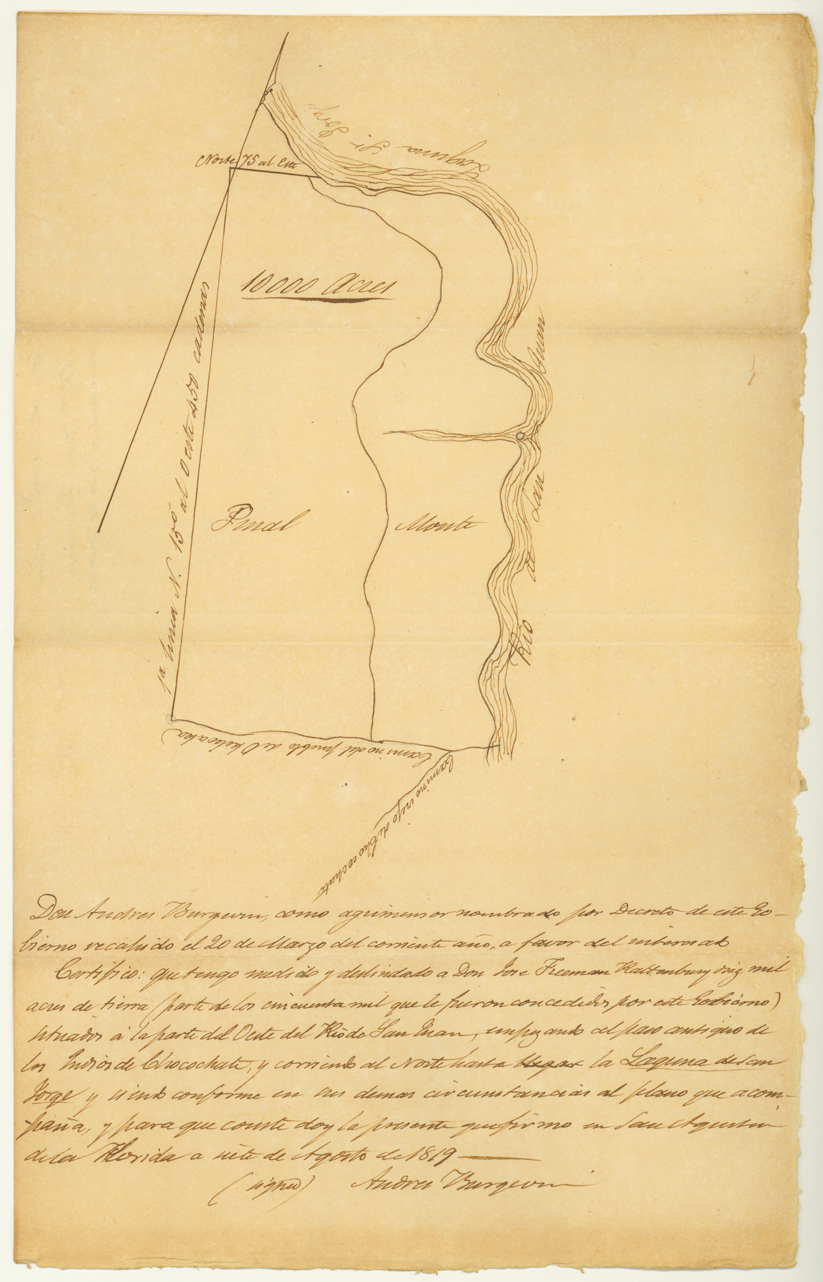 Laguna Sn Jorge
Norte 75 al Este
10000 Acres
1a linea N. 15º al Oeste 450 cadenas
Pinal
Monte
Rio de San Juan
Camino del pueblo de
Camino viejo de Chocochate
Don Andres Burgevin, como agrimensor nombrado por Decreto de este Go-
bierno recahido el 20 de Marzo del corriente año, a favor del interesado
Certifico: que tengo medido y deslindado a Don Jose Freeman Rattenbury diez mil
acres de tierra (parte de los cincuenta mil que le fueron concedidos por este Gobierno)
situados á la parte del Oeste del Rio de San Juan, empezando al paso antiguo de
los Indios de Chocochate, y corriendo al Norte hasta llegar la Laguna de San
Jorge y siendo conforme en sus demas circunstancias al plano que acom-
paña, y para que conste doy la presente que firmo en San Agustin
de la Florida a siete de Agosto de 1819
(signed) Andres Burgevin